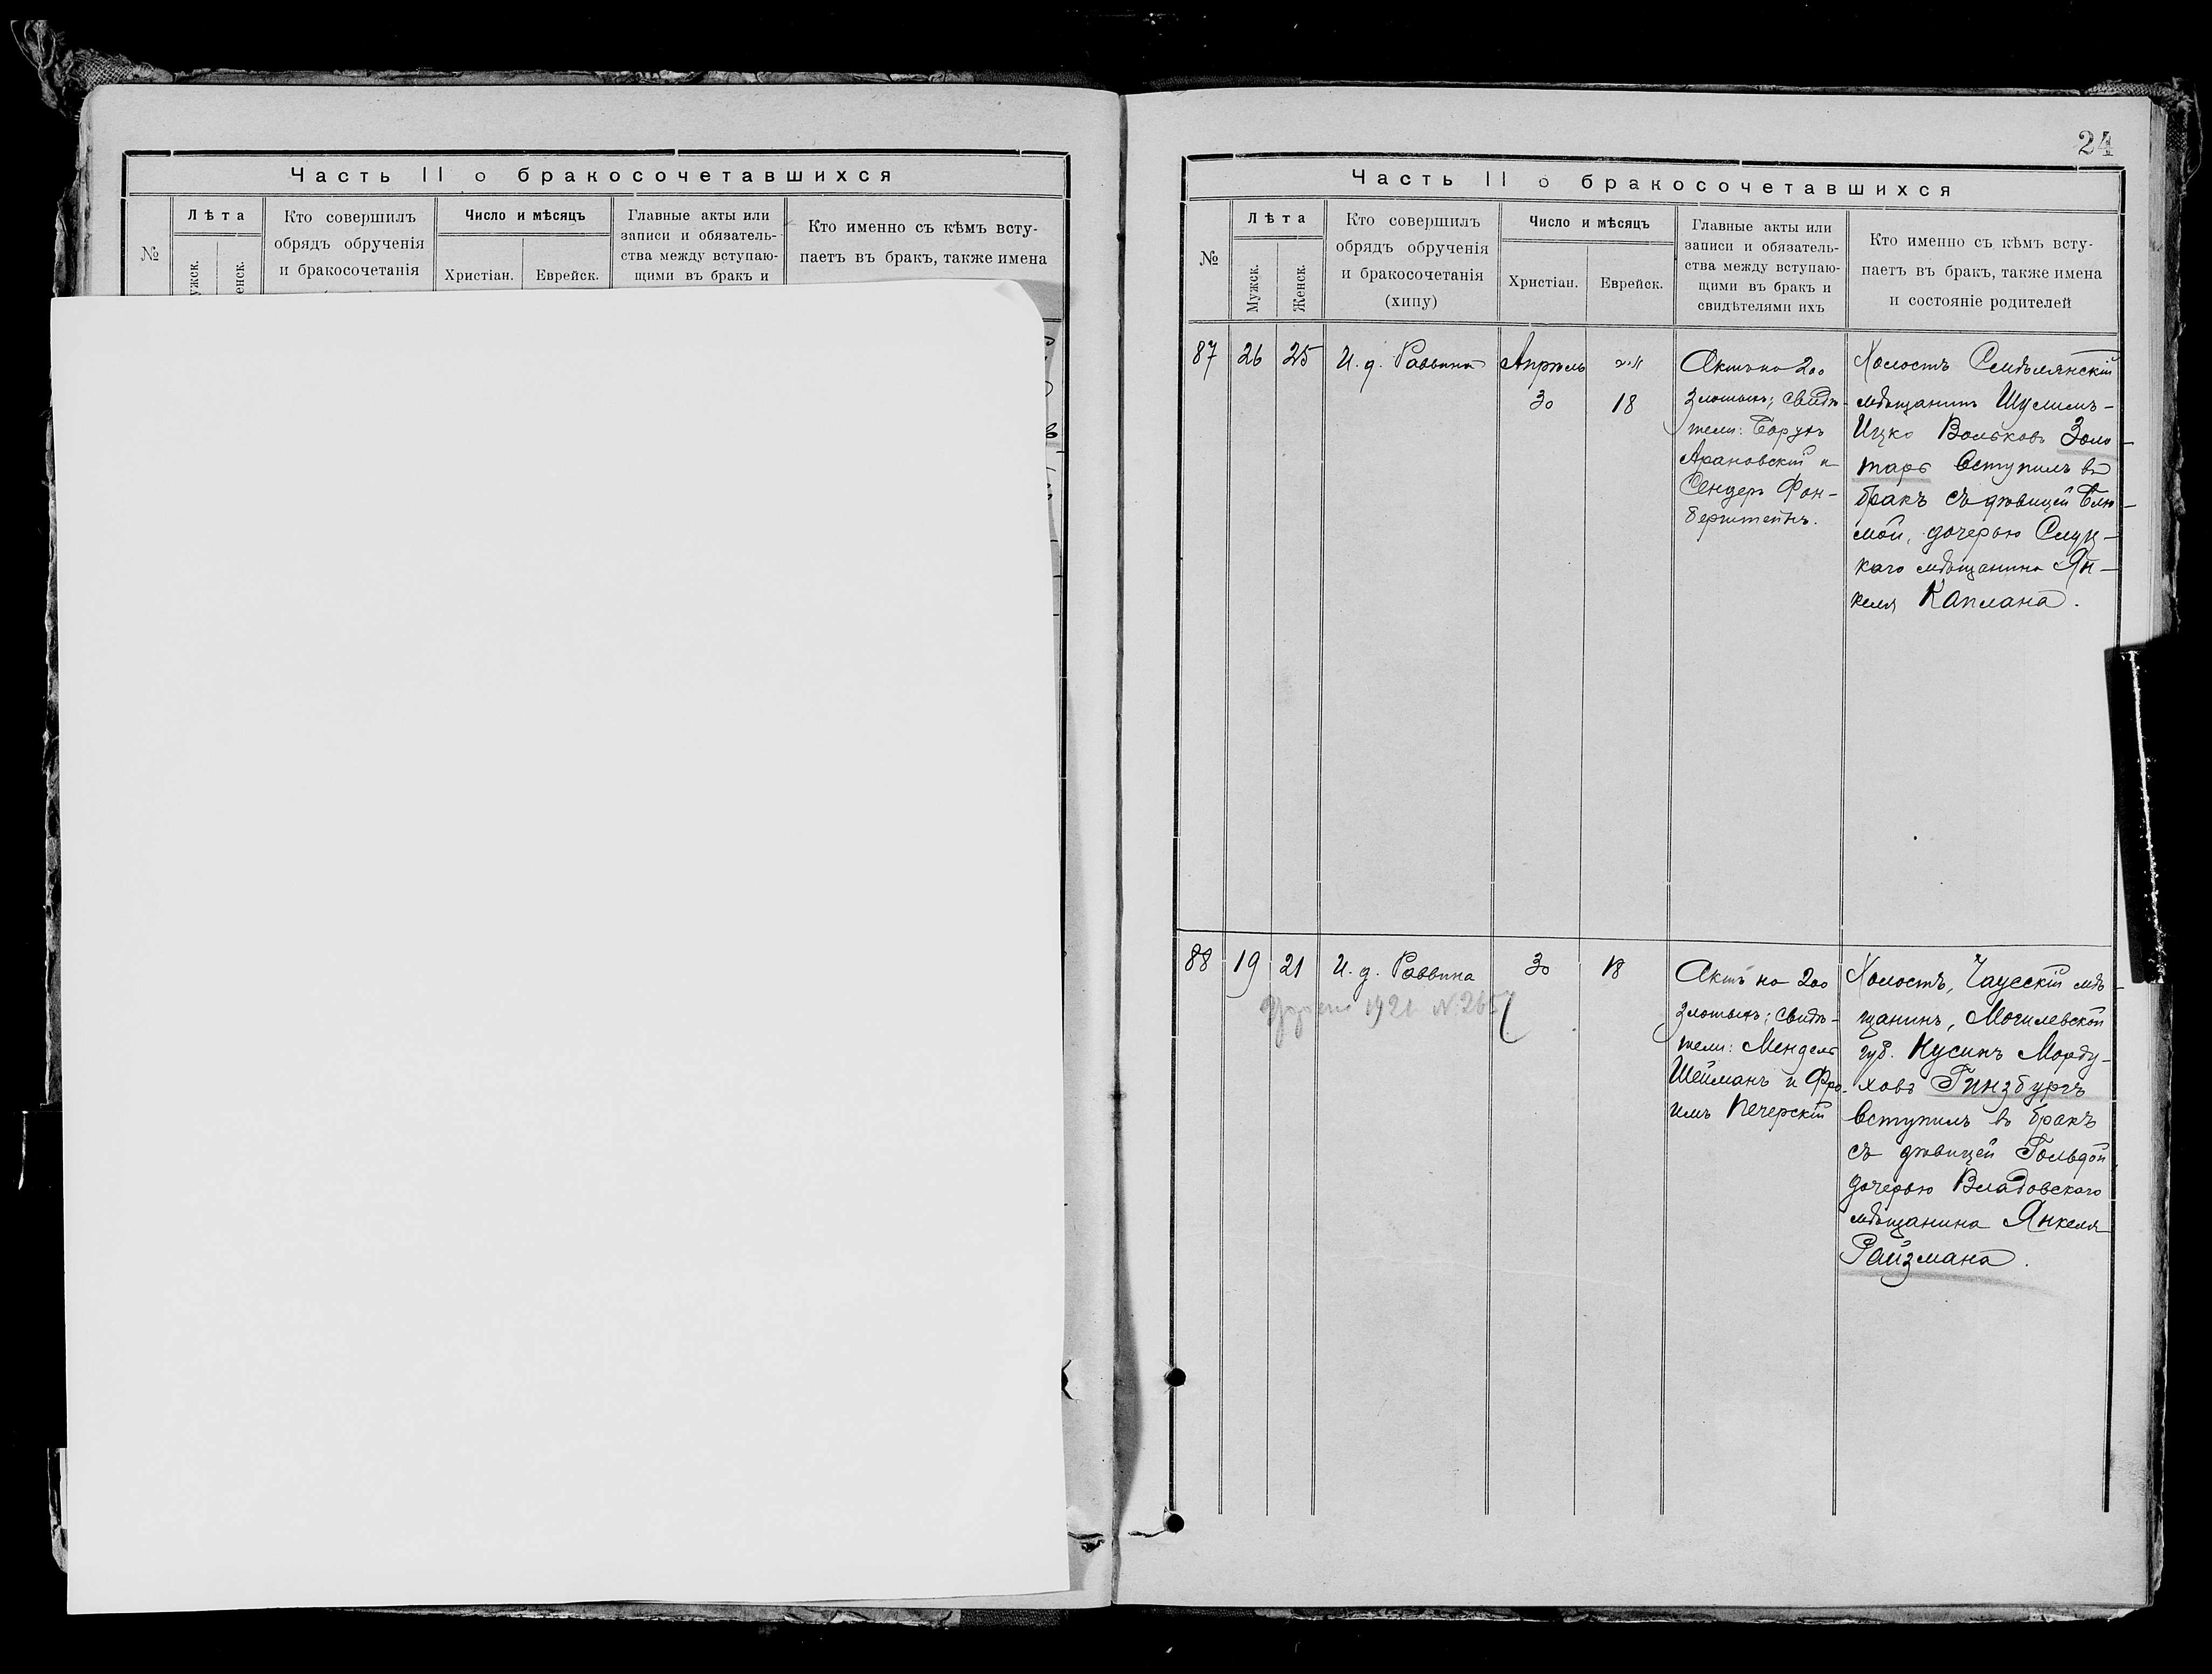 Часть II о бракосочетавшихся
№
Лѣта
ужск.
енск.
Кто совершилъ
обрядъ обрученія
и бракосочетанія
Число и мѣсяцъ
Христіан.
Еврейск.
Главные акты или
записи и обязатель-
ства между вступаю-
щими въ бракъ и
Кто именно съ кѣмъ всту-
паетъ въ бракъ, также имена
24
Часть II о бракосочетавшихся
№
Лѣта
Мужск.
Женск.
Кто совершилъ
обрядъ обрученія
и бракосочетанія
(хипу)
Число и мѣсяцъ
Христіан.
Еврейск.
Главные акты или
записи и обязатель-
ства между вступаю-
щими въ бракъ и
свидѣтелями ихъ
Кто именно съ кѣмъ всту-
паетъ въ бракъ, также имена
и состояніе родителей
87
26
25
И. д. Раввина
Апрѣль
30
18
Актъ на 200
злотыхъ; свидѣ-
тели: Борухъ
Арановскій и
Сендеръ Фон-
берштейнъ.
Холостъ Смѣлянскій
мѣщанинъ Шулимъ-
Ицко Вольковъ Золо-
тарь вступилъ въ
бракъ съ дѣвицей Блю-
мой, дочерью Слуц-
каго мѣщанина Ян-
келя Каплана.
88
19
21
И. д. Раввина
1921 №265
30
18
Актъ на 200
злотыхъ; свидѣ-
тели: Мендель
Шейманъ и Фро-
имъ Печерскій
Холостъ, Чаусскій мѣ-
щанинъ, Могилевской
губ. Нусинъ Морду-
ховъ Гинзбургъ
вступилъ въ бракъ
съ дѣвицей Гольдой
дочерью Владовскаго
мѣщанина Янкеля
Райзмана.